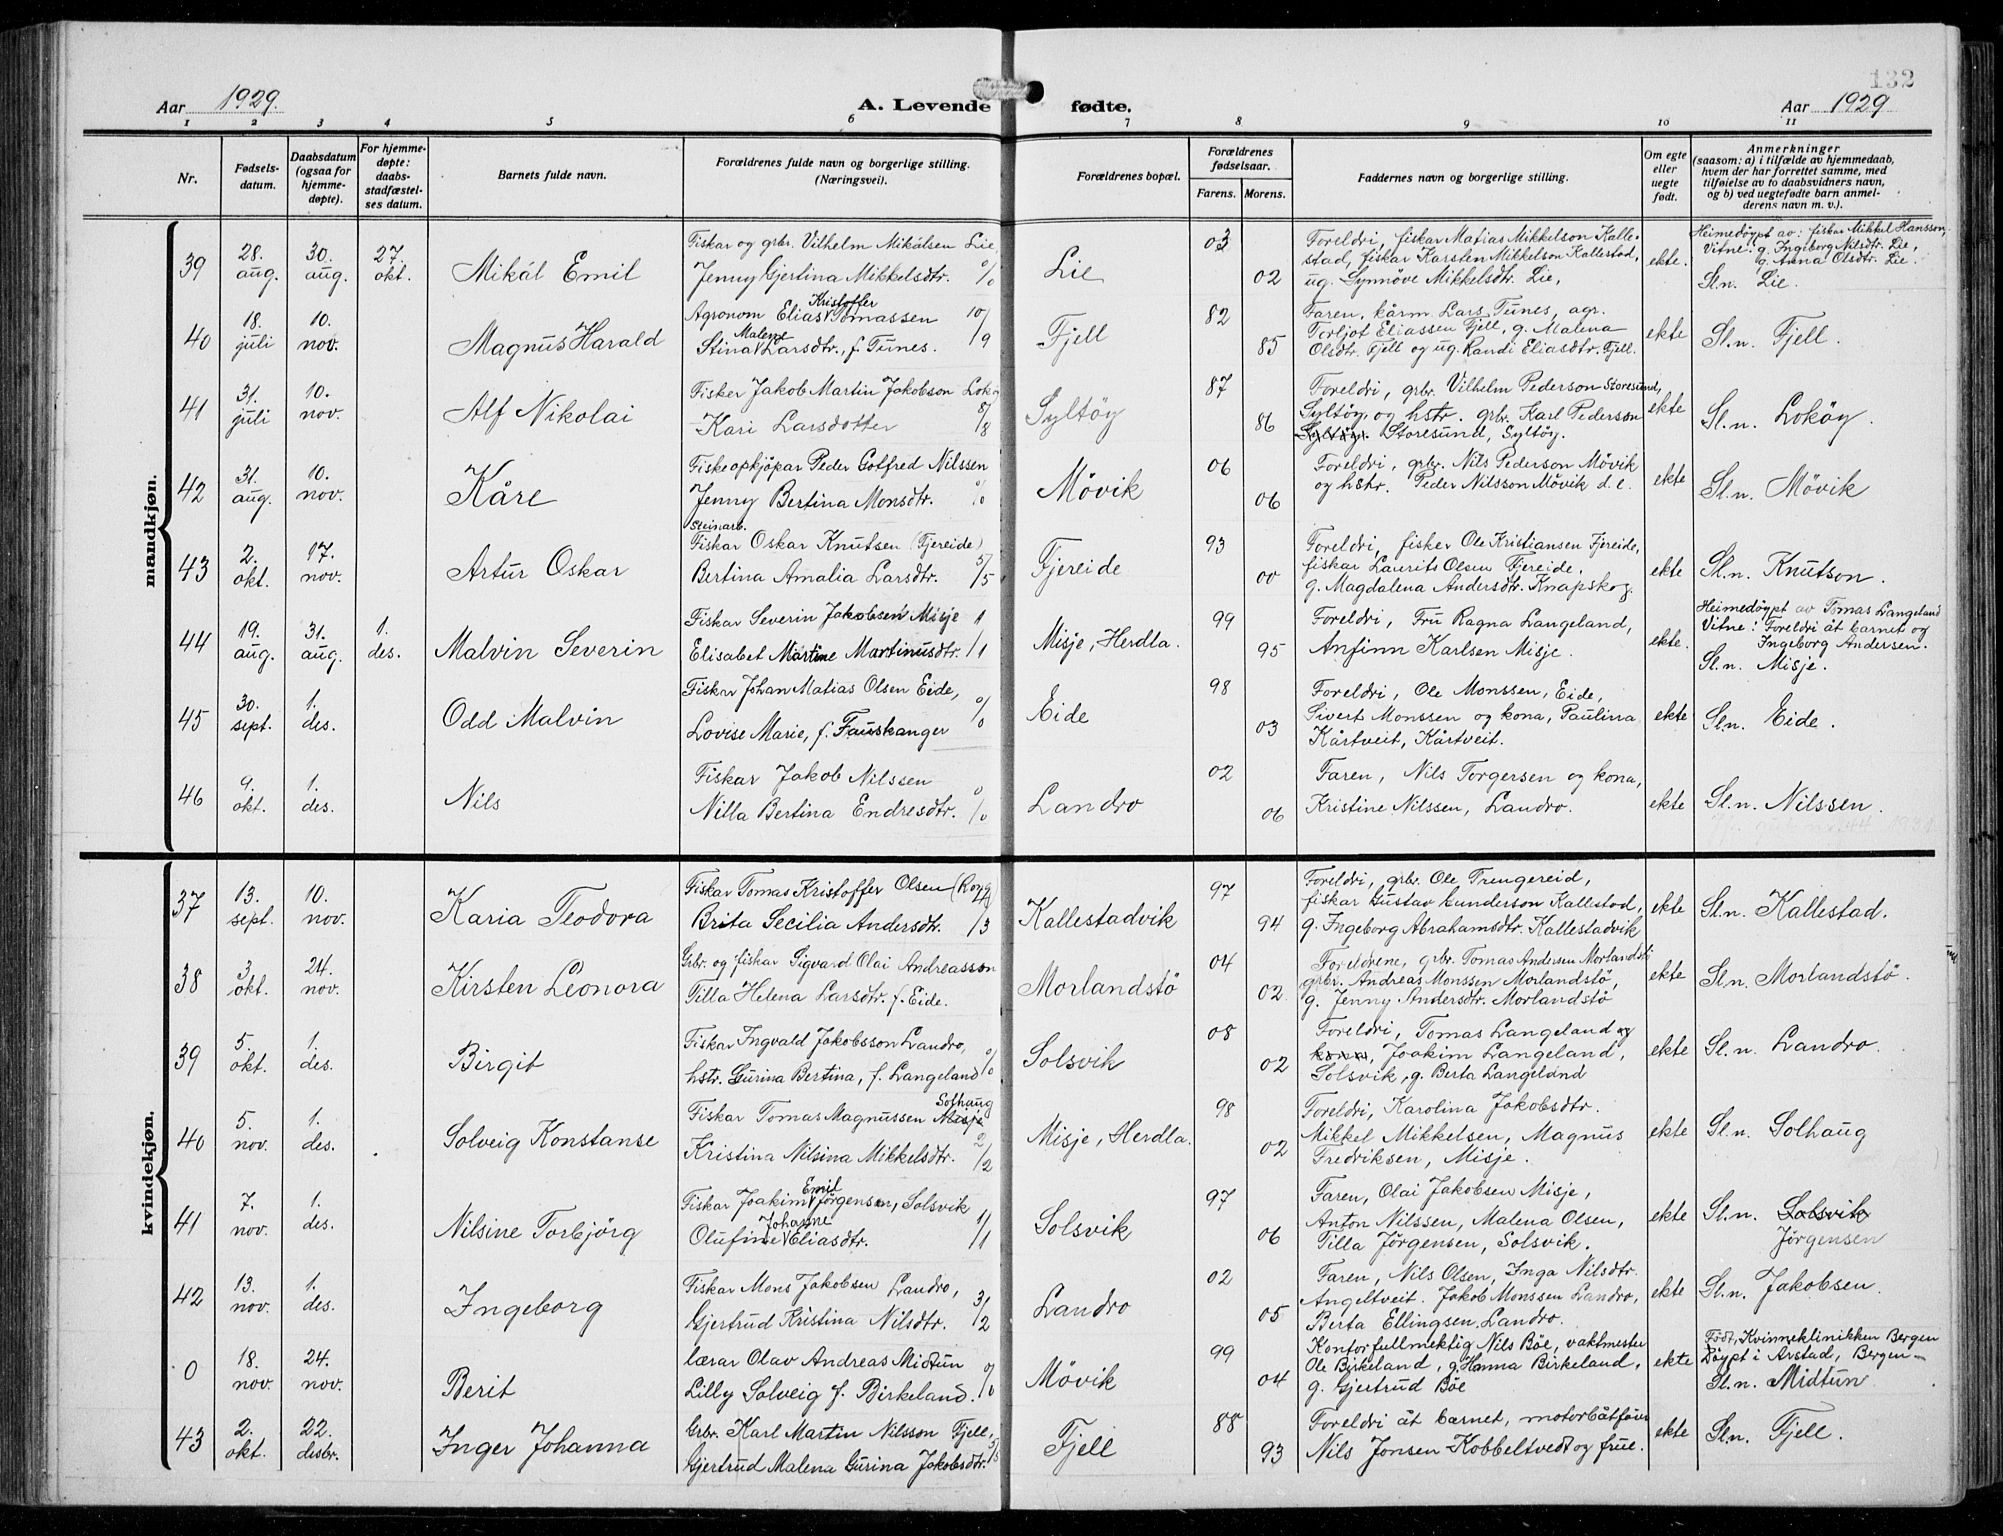 132
Aar 1929.
A. Levende fødte.
Aar 1929
1 2 3 4 5 6 7 8 9 10 11
Nr.
Fødsels-
datum.
Daabsdatum
(ogsaa for
hjemme-
døpte).
For hjemme-
døpte:
daabs-
stadfæstel-
ses datum.
Barnets fulde navn.
Forældrenes fulde navn og borgerlige stilling.
(Næringsvei).
Forældrenes bopæl.
Forældrenes
fødselsaar.
Farens. Morens.
Faddernes navn og borgerlige stilling.
Om egte
eller
uegte
født.
Anmerkninger
(saasom: a) i tilfælde av hjemmedaab,
hvem der har forrettet samme, med
tilføielse av to daabsvidners navn,
og b) ved uegtefødte barn anmel-
derens navn m. v.).
mandkjøn.
39
28.
aug.
30.
aug.
27.
okt.
Mikál Emil
Fiskar og grbr. Vilhelm Mikálsen Lie,
Jenny Gjertina Mikkelsdtr. 0/0
Lie
03
02
Foreldri, fiskar Matias Mikkelson Kalle-
stad, fiskar Karsten Mikkelson Kallestad,
ug. Synnöve Mikkelsdtr. Lie,
ekte.
Heimedöypt av: fiskar Mikkel Hansson,
Vitne: g. Ingeborg Nilsdtr. Lie,
g. Anna Olsdtr. Lie.
Sl.n. Lie.
40
18.
juli
10.
nov.
Magnus Harald
Kristoffer
Agronom Elias Tomassen 10/9
Malene
Stina Larsdtr., f. Tunes.
Fjell
82
85
Faren, kårm. Lars Tunes, agr.
Torljot Eliassen Fjell, g. Malena
Olsdtr. Fjell og ug. Randi Eliasdtr. Fjell.
ekte
Sl.n. Fjell.
41
31.
juli
10.
nov.
Alf Nikolai
Fisker Jakob Martin Jakobson Lokøy
Kari Larsdotter 8/8
Syltöy
87
86
Foreldri, grbr. Vilhelm Pederson Storesund,
Syltöy, og hstr. grbr. Karl Pederson
Syltöy. Storesund, Syltöy.
ekte
Sl.n. Loköy.
42
31.
aug.
10.
nov.
Kåre
Fiskeopkjöpar Peder Gotfred Nilssen
Jenny Bertina Monsdtr. 0/0
Mövik
06
06
Foreldri, grbr. Nils Pederson Mövik
og hstr. Peder Nilsson Mövik d.e.
ekte
Sl.n. Mövik
43
2.
okt.
17.
nov.
Artur Oskar
Steinarb.
Fiskar Oskar Knutsen (Fjereide)
Bertina Amalia Larsdtr. 5/5
Fjereide
93
00
Foreldri, fisker Ole Kristiansen Fjereide,
fiskar Laurits Olsen Fjereide,
g. Magdalena Andersdtr. Knapskog.
ekte
Sl.n. Knutson.
44
19.
aug.
31.
aug.
1.
des.
Malvin Severin
Fiskar Severin Jakobsen Misje 1
Elisabet Martine Martinusdtr. /1
Misje, Herdla.
99
95
Foreldri, Fru Ragna Langeland,
Anfinn Karlsen Misje.
ekte.
Heimedöypt av Tomas Langeland
Vitne: Foreldri åt barnet og
Ingeborg Andersen.
Sl.n. Misje.
45
30.
sept.
1.
des.
Odd Malvin
Fiskar Johan Matias Olsen Eide,
Lovise Marie, f. Fauskanger 0/0
Eide
98
03
Foreldri, Ole Monssen, Eide,
Sivert Monssen og kona, Paulina
Kårtveit, Kårtveit.
ekte
Sl.n. Eide.
46
9.
okt.
1.
des.
Nils
Fiskar Jakob Nilssen
Nilla Bertina Endresdtr. 0/0
Landro
02
06
Faren, Nils Torgersen og kona,
Kristine Nilssen, Landro.
ekte
Sl.n. Nilssen.
kvindekjøn.
37
13.
sept.
10.
nov.
Karia Teodora
Fiskar Tomas Kristoffer Olsen
Brita Secilia Andersdtr. /3
Kallestadvik
97
94
Foreldri, grbr. Ole Trengereid,
fiskar Gustav Gunderson Kallestad,
g. Ingeborg Abrahamsdtr. Kallestadvik
ekte
Sl.n. Kallestad.
38
3.
okt.
24.
nov.
Kirsten Leonora
Grbr. og fiskar Sigvard Olai Andreasson
Tilla Helena Larsdtr. f. Eide.
Morlandstö
04
02
Foreldrene, grbr. Tomas Andersen Morlandstö
grbr. Andreas Monssen Morlandstö,
g. Jenny Andersdtr. Morlandstö
ekte
Sl.n. Morlandstö.
39
5.
okt.
1.
des.
Birgit
Fiskar Ingvald Jakobsson Landro,
hstr. Gurina Bertina, f. Langeland 0/0
Solsvik
08
02
Foreldri, Tomas Langeland og
kona, Joakim Langeland,
Solsvik, g. Berta Langeland
ekte
Sl.n. Landro.
40
5.
nov.
1.
des.
Solveig Konstanse
Solhaug
Fiskar Tomas Magnussen Misje
Kristina Nilsina Mikkelsdtr. 2/2
Misje, Herdla.
98
02
Foreldri, Karolina Jakobsdtr.
Mikkel Mikkelsen, Magnus
Fredriksen, Misje.
ekte
Sl.n. Solhaug
41
7.
nov.
1.
des.
Nilsine Torbjörg
Emil
Fiskar Joakim Jörgensen, Solsvik
Johanne
Olufine Eliasdtr. 1/1
Solsvik
97
06
Faren, Olai Jakobsen Misje,
Anton Nilssen, Malena Olsen,
Tilla Jörgensen, Solsvik.
ekte
Sl.n. Solsvik
Jörgensen
42
13.
nov.
1.
des.
Ingeborg
Fiskar Mons Jakobsen Landro,
Gjertrud Kristina Nilsdtr. 3/2
Landro
02
05
Faren, Nils Olsen, Inga Nilsdtr.
Angeltveit. Jakob Monssen Landro,
Berta Ellingsen, Landro.
ekte
Sl.n. Jakobsen.
0
18.
nov.
24.
nov.
Berit
lærar Olav Andreas Midtun
Lilly Solveig f. Birkeland. 0/0
Mövik
99
04
Kontorfullmektig Nils Böe, vaktmester
Ole Birkeland, g. Hanna Birkeland,
g. Gjertrud Böe
ekte
Födt, Kvinneklinikken Bergen
Döypt i Årstad, Bergen-
Sl.n. Midtun
43
2.
okt.
22.
desbr.
Inger Johanna
Grbr. Karl Martin Nilsson Fjell,
Gjertrud Malena Gurina Jakobsdtr.
Fjell
88
93
Foreldri åt barnet, motorbåtförer
Nils Jonsen Kobbeltvedt og frue.
ekte
Sl.n. Fjell.